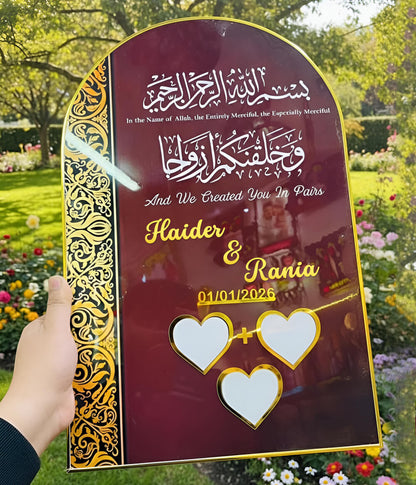 بسم الله الرحمن الرحيم
In the Name of Allah, the Entirely Merciful, the Especially Merciful
وخلقنكم أزواجا
And We Created You In Pairs
Haider
&
Rania
01/01/2026
+